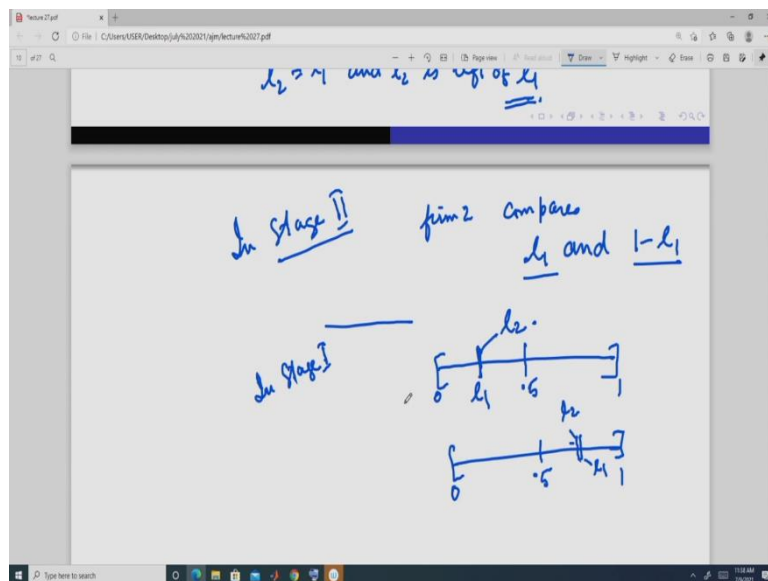 lecture 27.pdf
File | C:/Users/USER/Desktop/july%202021/ajm/lecture%2027.pdf
of 27
Page view
Read aloud
Draw
Highlight
Erase
l2 = l1 and l2 is left of l1
In Stage II firm 2 compares
l1 and 1-l1
In Stage I
l2
0 l1 .5 1
l2
0 .5 l1 1
Type here to search
11:38 AM